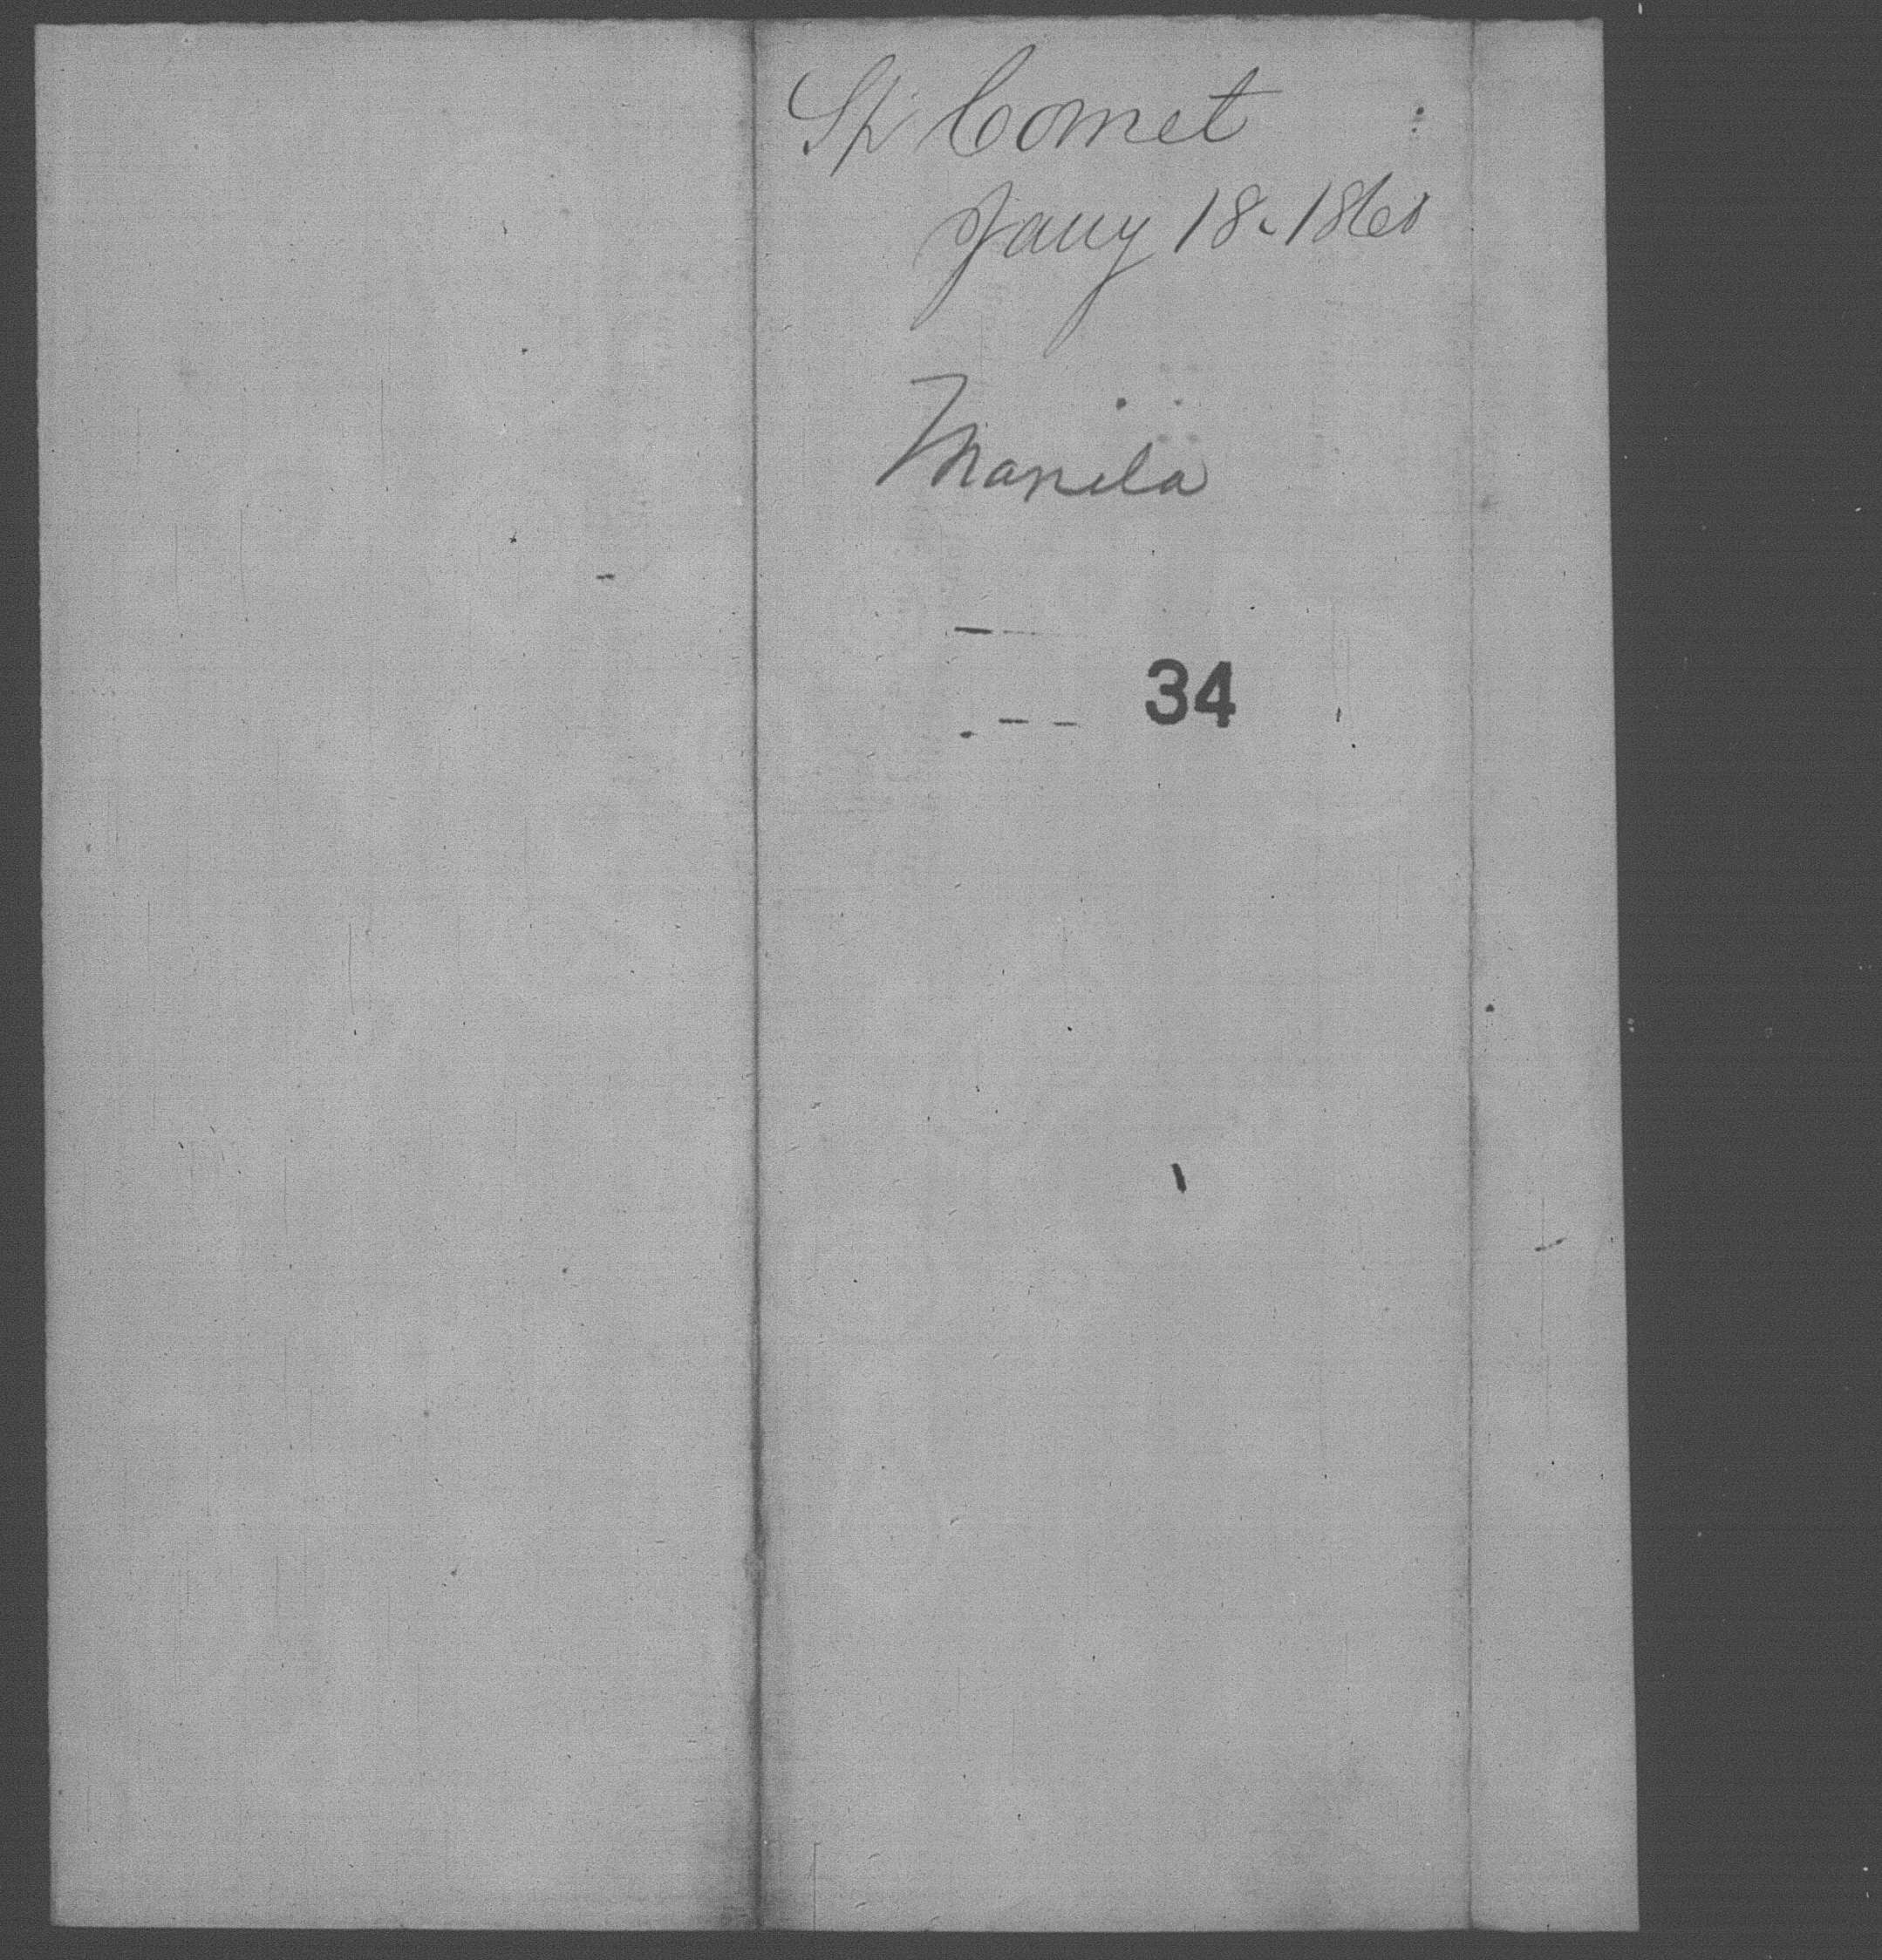 Sp Comet
Jany 18. 1860
Manila
34